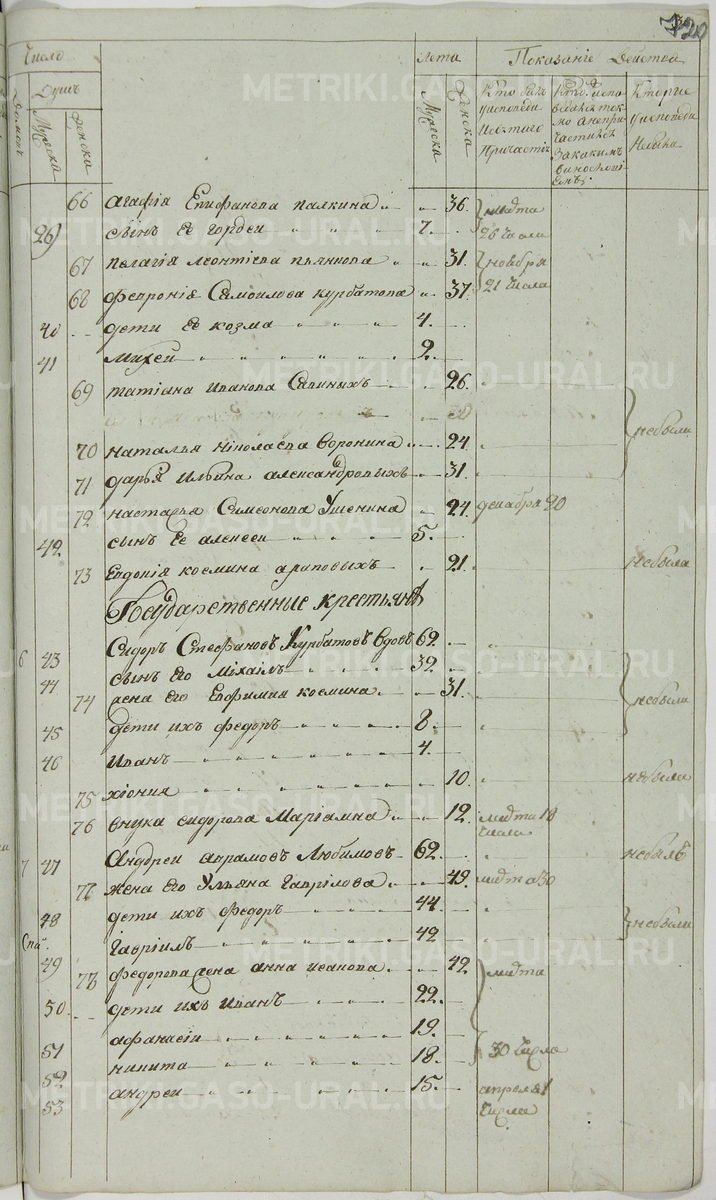 720
Число Лета Показанiе Действа
Домовъ Душъ Мужеска Женска Мужеска Женска Кто былъ у исповеди и святаго Причастiя Кто исповедался токмо а непричастился Которые у исповеди небыли
66 агафiя Епифанова палкина „ „ 36. марта
39 сынъ Ее гордеи „ „ „ „ 7. 26 числа
67 пелагiя леонтiева пьянкова „ „ 31. ноября
68 феврониiя Самоилова курбатова „ 37. 21 числа
40 дети Ее козма „ „ „ „ 4.
41 михеи „ „ „ „ „ „ 2.
69 татiана иванова Савиныхъ 26.
70 наталья нiколаева воронина „ 24 небыли
71 дарья Ильина александровыхъ „ 31.
72 настасья Симеонова Ушенина „ 24. декабря 20
42. сынъ Ее алексеи „ „ 5.
73 Евдокiя космина араповыхъ „ 21. небыла
Государственные крестьянѣ
6 43 Сидоръ Стефановъ Курбатовъ вдовъ 62.
44 сынъ Его Мiхаилъ „ „ „ „ 32.
74 жена Его Евфимия космина. „ „ 31. небыли
45 дети ихъ федоръ „ „ „ „ 8.
46 Иванъ „ „ „ „ „ „ 4.
75 хiония „ „ „ „ „ „ 10. небыла
76 внука сидорова Марiамна „ „ 12. марта 18 числа
7 47 Андреи аврамовъ Любимовъ 62. небылъ
77 жена Его Ульяна гаврiлова „ „ 49. марта 30
48 дети ихъ федоръ „ „ „ „ 44. небыли
49 гаврiилъ „ „ „ „ „ 42
78 федорова жена анна исакова. „ „ 42. марта
50. дети ихъ иванъ „ „ „ 22.
51 афанасiи „ „ „ „ „ „ 19.
52 никита „ „ „ „ „ „ 18. 30 числа
53 андреи „ „ „ „ „ „ 15. апреля 1 числа
METRIKI.GASO-URAL.RU